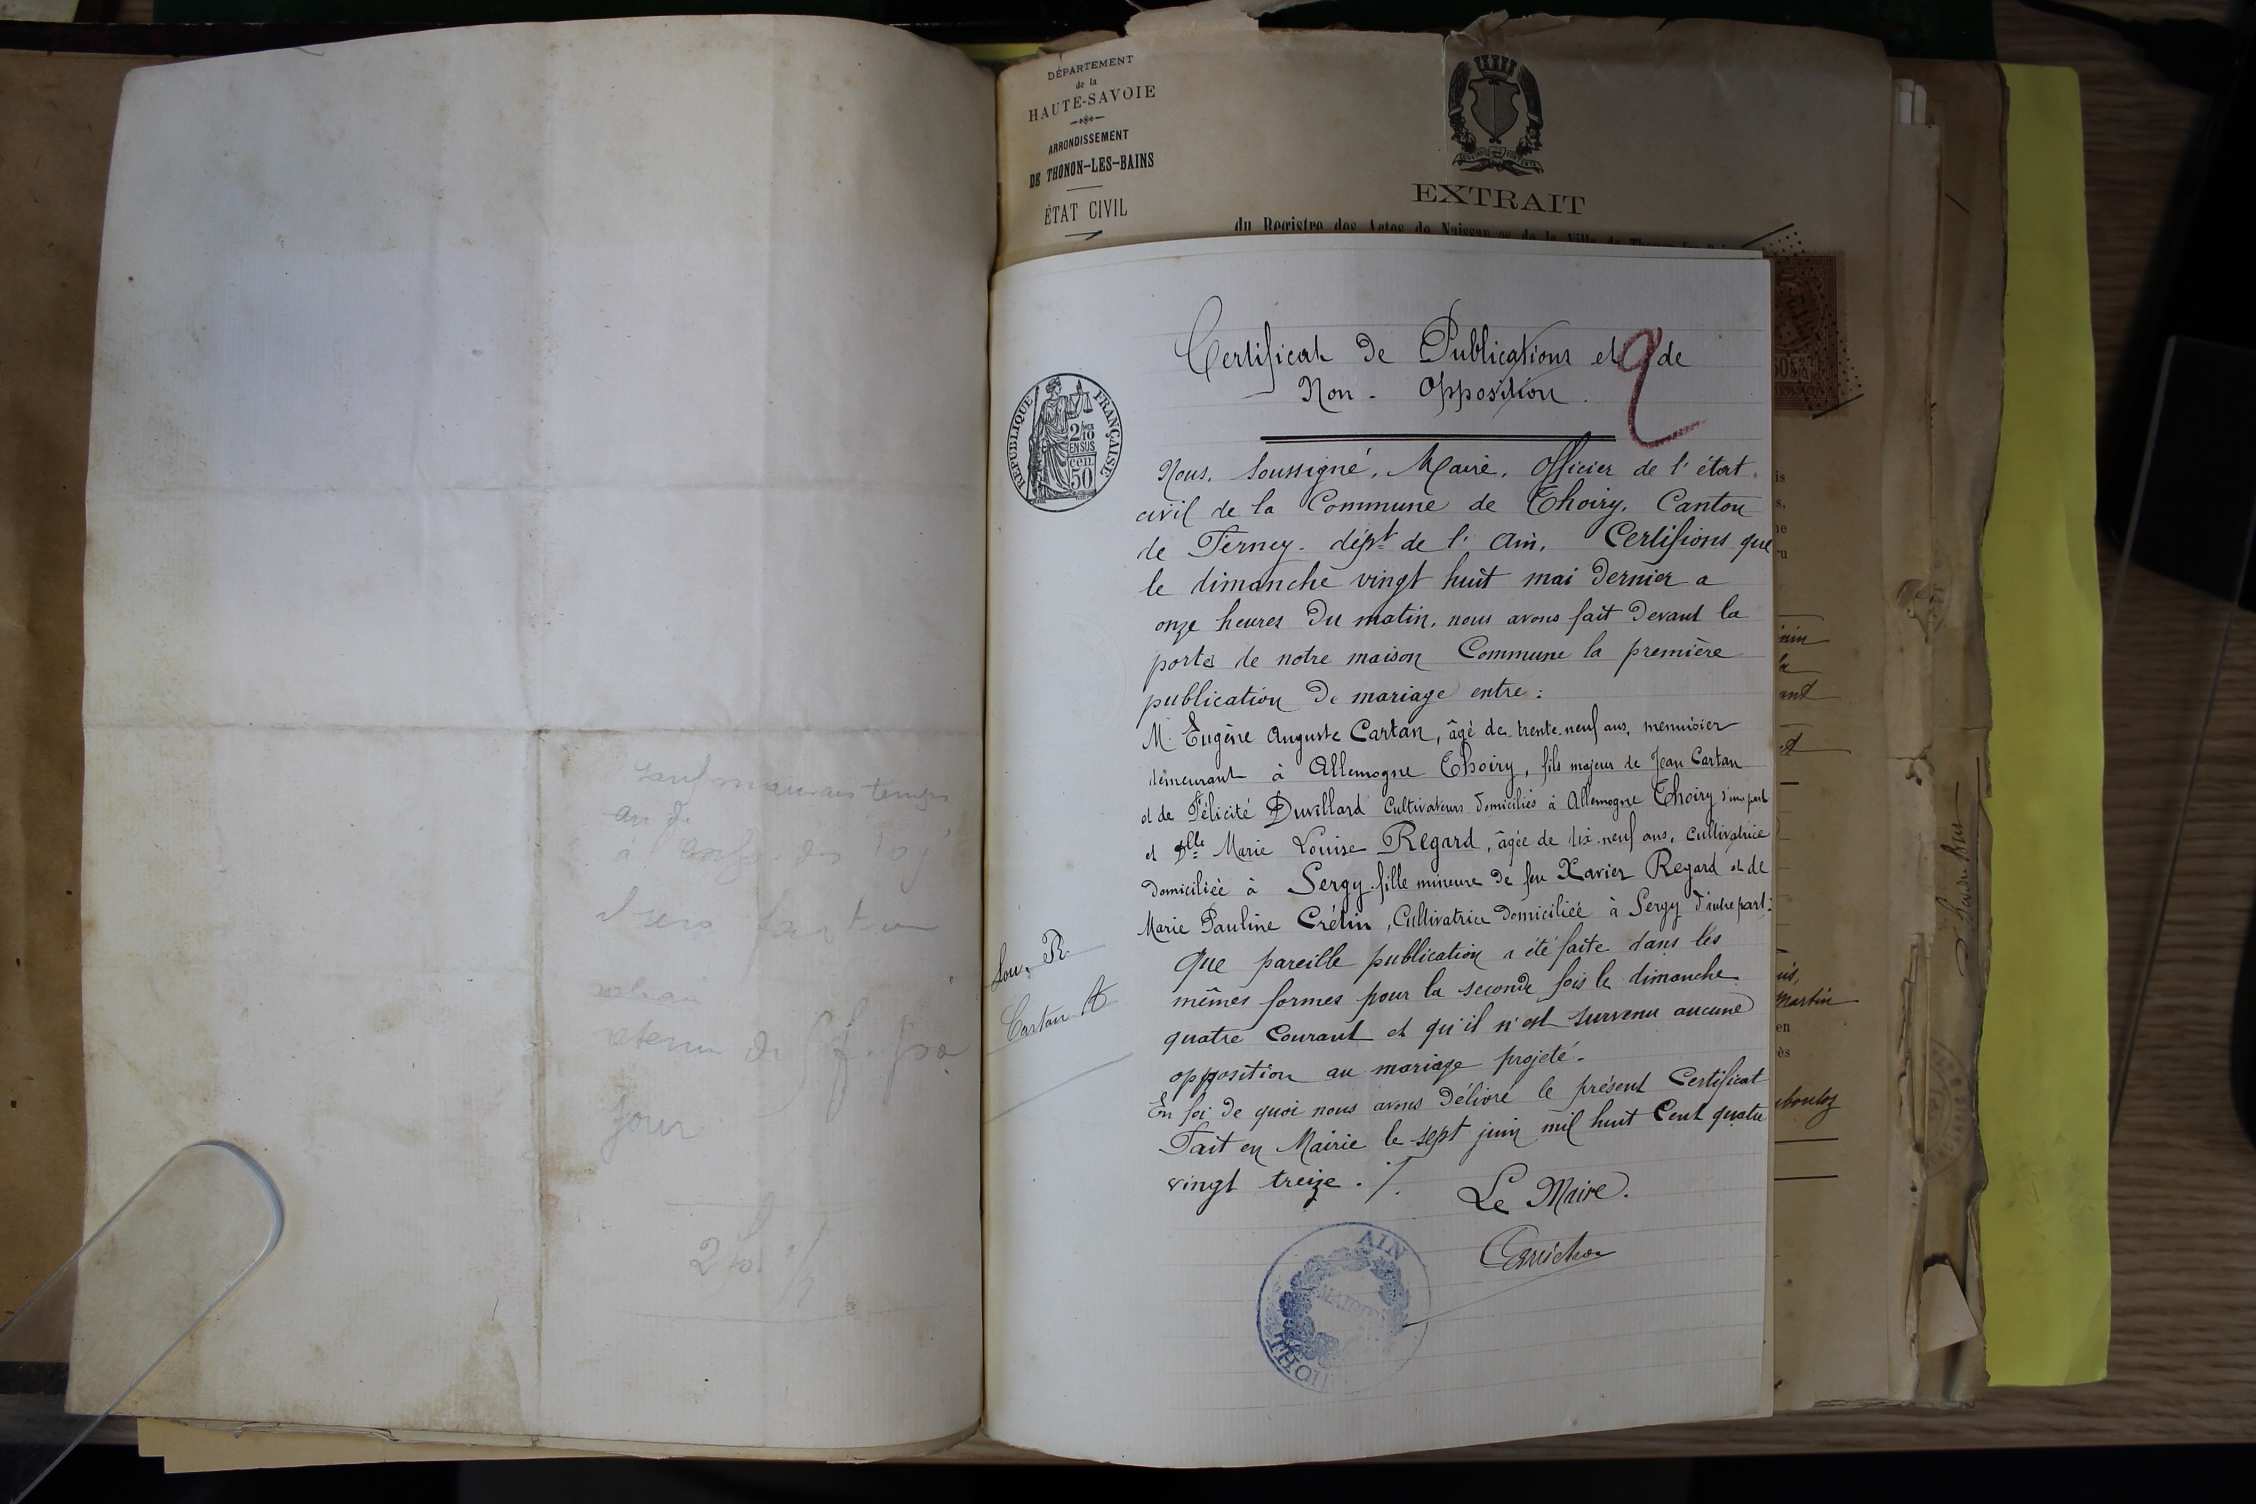 DÉPARTEMENT
de la
HAUTE-SAVOIE
ARRONDISSEMENT
DE THONON-LES-BAINS
ÉTAT CIVIL
EXTRAIT
du Registre des Actes de Naissances de la Ville de
Certificat de Publications et de
Non-Opposition.
2
RÉPUBLIQUE FRANÇAISE
2/10
EN SUS
cen
50
Nous, soussigné, Maire, Officier de l'état
civil de la Commune de Thoiry, Canton
de Ferney, dépt de l'Ain, Certifions que
le dimanche vingt huit mai dernier a
onze heures du matin, nous avons fait devant la
porte de notre maison Commune la première
publication de mariage entre :
M. Eugène Auguste Cartan, âgé de trente-neuf ans, menuisier
demeurant à Allemogne Thoiry, fils majeur de Jean Cartan
et de Félicité Duvillard Cultivateurs domiciliés à Allemogne Thoiry d'une part
et Dlle Marie Louise Regard, âgée de dix-neuf ans, cultivatrice
domiciliée à Sergy fille mineure de feu Xavier Regard et de
Marie Pauline Crétin, Cultivatrice domiciliée à Sergy d'autre part :
Que pareille publication a été faite dans les
mêmes formes pour la seconde fois le dimanche
quatre Courant et qu'il n'est survenu aucune
opposition au mariage projeté.
En foi de quoi nous avons délivré le présent Certificat
Fait en Mairie le sept juin mil huit Cent quatre
vingt treize ./.
Le Maire.
Cartan A
AIN
MAIRIE
THOI
sauf mauvais temps
jour
Martin